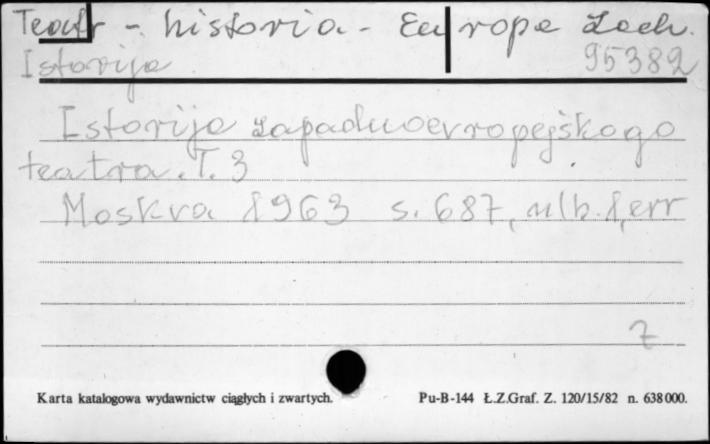 Teatr - historia - Europa Zach.
Istorija 95382
Istorija zapadnoevropejskogo
teatra. T. 3
Moskva 1963 s. 687, nlb. 1, err
7
Karta katalogowa wydawnictw ciągłych i zwartych. Pu-B-144 Ł.Z.Graf. Z. 120/15/82 n. 638 000.